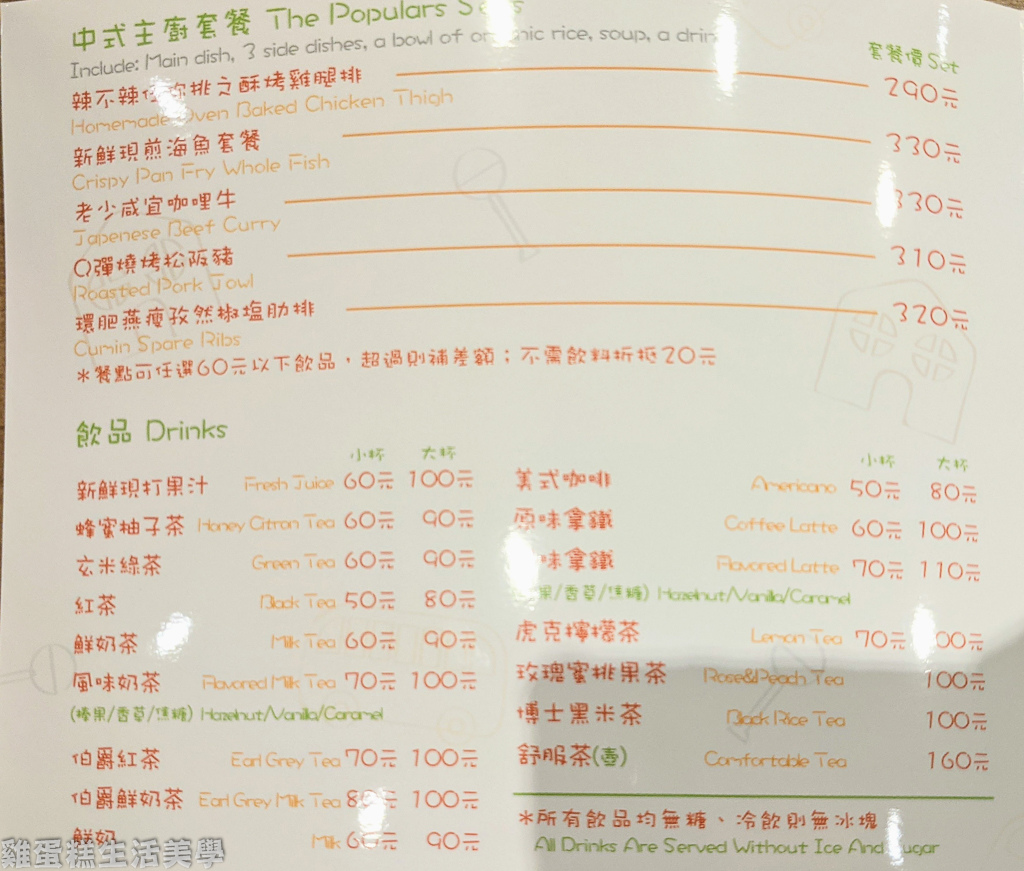 中式主廚套餐 The Populars
Include: Main dish, 3 side dishes, a bowl of rice, soup, a
套餐價 Set
辣不辣你挑之酥烤雞腿排 290元
Homemade Oven Baked Chicken Thigh
新鮮現煎海魚套餐 330元
Crispy Pan Fry Whole Fish
老少咸宜咖哩牛 330元
Japenese Beef Curry
Q彈燒烤松阪豬 310元
Roasted Pork Jowl
環肥燕瘦孜然椒塩肋排 320元
Cumin Spare Ribs
*餐點可任選60元以下飲品，超過則補差額；不需飲料折抵20元
飲品 Drinks
小杯 大杯
新鮮現打果汁 Fresh Juice 60元 100元
蜂蜜柚子茶 Honey Citron Tea 60元 90元
玄米綠茶 Green Tea 60元 90元
紅茶 Black Tea 50元 80元
鮮奶茶 Milk Tea 60元 90元
風味奶茶 Flavored Milk Tea 70元 100元
(榛果/香草/焦糖) Hazelnut/Vanilla/Caramel
伯爵紅茶 Earl Grey Tea 70元 100元
伯爵鮮奶茶 Earl Grey Milk Tea 元 100元
鮮奶 Milk 60元 90元
小杯 大杯
美式咖啡 Americano 50元 80元
原味拿鐵 Coffee Latte 60元 100元
味拿鐵 Flavored Latte 70元 110元
果/香草/焦糖) Hazelnut/Vanilla/Caramel
虎克檸檬茶 Lemon Tea 70元 00元
玫瑰蜜桃果茶 Rose&Peach Tea 100元
博士黑米茶 Black Rice Tea 100元
舒服茶(壺) Comfortable Tea 160元
*所有飲品均無糖、冷飲則無冰塊
All Drinks Are Served Without Ice And Sugar
雞蛋糕生活美學